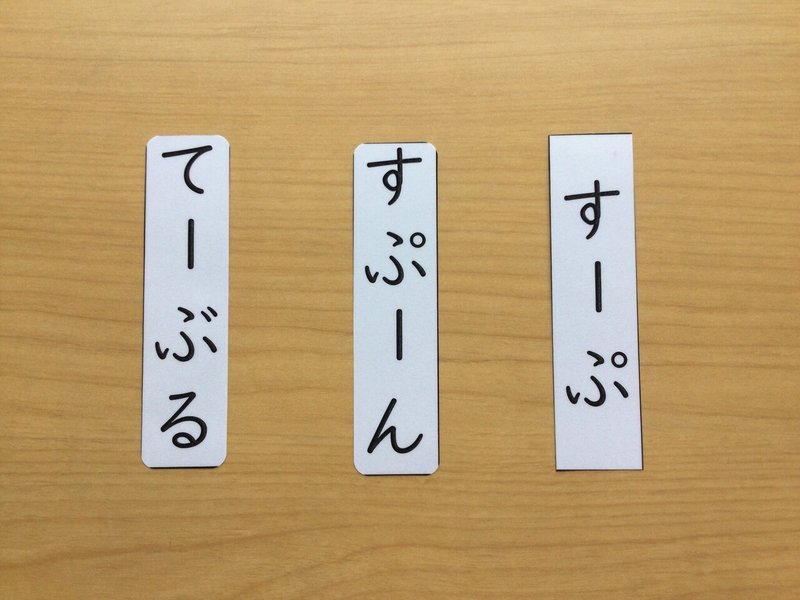 すーぷ
すぷーん
てーぶる